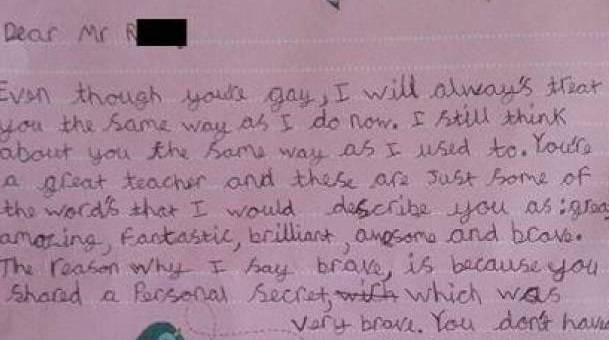 Dear Mr R
Even though you're gay, I will alway's treat
you the same way as I do now. I still think
about you the same way as I used to. You're
a great teacher and these are Just some of
the word's that I would describe you as: grea
amazing, fantastic, brilliant, awesome and brave.
The reason why I say brave, is because you
shared a Personal secret, with which was
very brave. You don't have